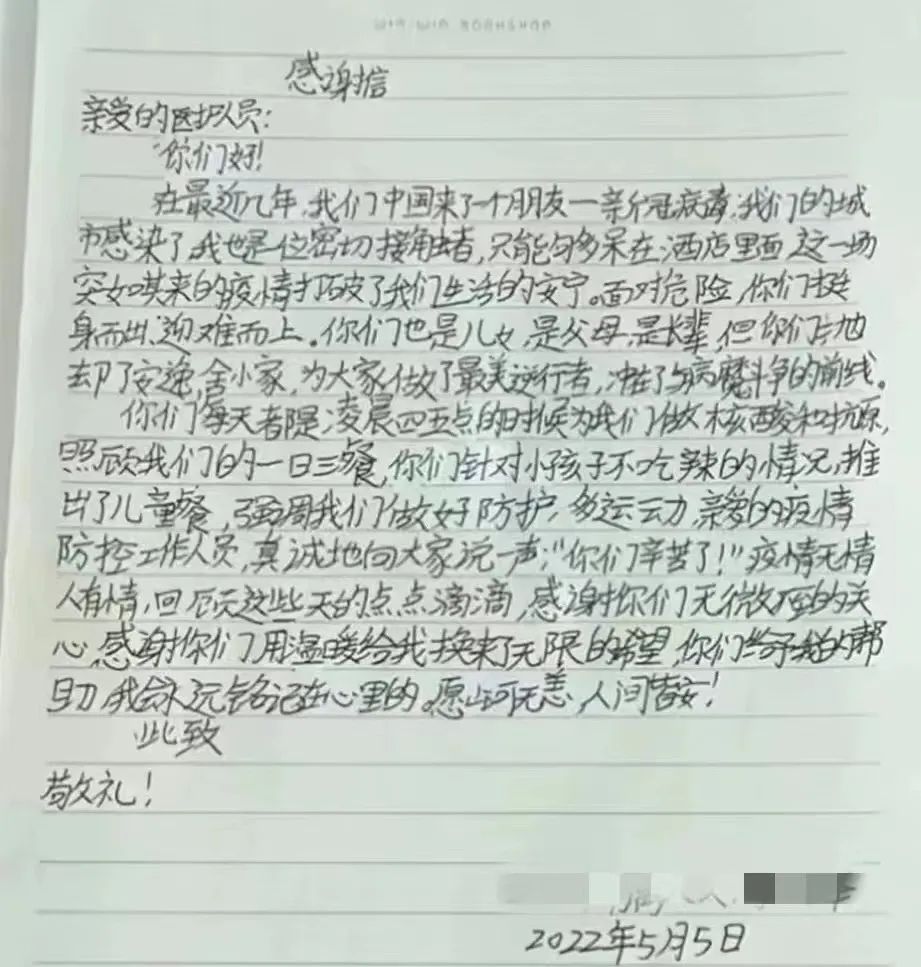 WIN WIN BOBHSHOP
感谢信
亲爱的医护人员:
你们好!
在最近几年,我们中国来了一个朋友一新冠病毒,我们的城
市感染了,我也是一位密切接触者,只能勾多呆在酒店里面,这一场
突如其来的疫情打破了我们生活的安宁。面对危险,你们挺
身而出,迎难而上。你们也是儿女,是父母,是长辈,但你们抛
却了安逸,舍小家,为大家做了最美逆行者,冲在了与病魔斗争的前线。
你们每天都是凌晨四五点的时候为我们做核酸和抗原,
照顾我们的一日三餐,你们针对小孩子不吃辣的情况,推
出了儿童餐,强调我们做好防护,多运动,亲爱的疫情
防控工作人员,真诚地向大家说一声:"你们辛苦了!"疫情无情
人有情,回顾这些天的点点滴滴,感谢你们无微不至的关
心,感谢你们用温暖给我换来了无限的希望,你们给予我的帮
助,我会永远铭记在心里的。愿山河无恙,人间皆安!
此致
敬礼!
2022年5月5日